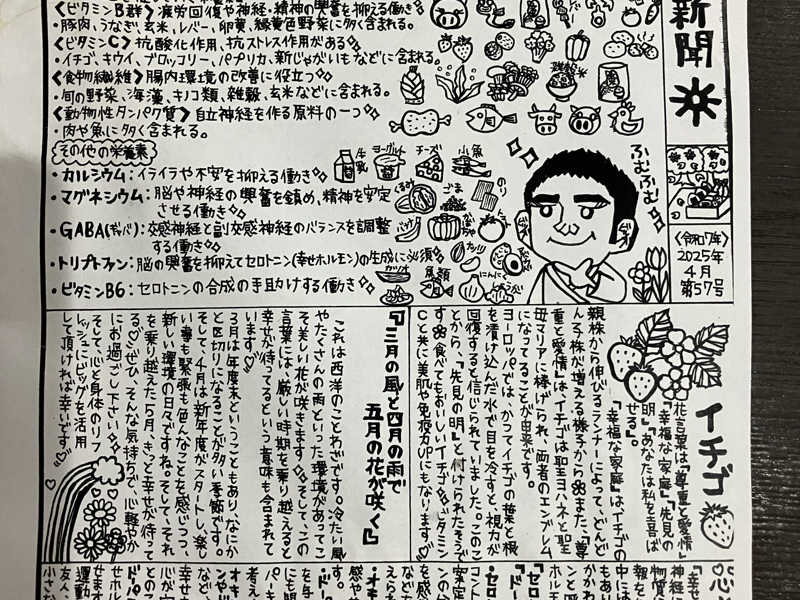 新聞
《令和7年》
2025年
4月
第57号
<ビタミンB群>疲労回復や神経・精神の興奮を抑える働き
・豚肉、うなぎ、玄米、レバー、卵黄、緑黄色野菜に多く含まれる。
<ビタミンC>抗酸化作用、抗ストレス作用がある
・イチゴ、キウイ、ブロッコリー、パプリカ、新じゃがいもなどに含まれる。
<食物繊維>腸内環境の改善に役立つ
・旬の野菜、海藻、キノコ類、雑穀、玄米などに含まれる。
<動物性タンパク質>自立神経を作る原料の一つ
・肉や魚に多く含まれる。
その他の栄養素
・カルシウム:イライラや不安を抑える働き
・マグネシウム:脳や神経の興奮を鎮め、精神を安定
させる働き
・GABA(ギャバ):交感神経と副交感神経のバランスを調整
する働き
・トリプトファン:脳の興奮を抑えてセロトニン(幸せホルモン)の生成に必須
・ビタミンB6:セロトニンの合成の手助けする働き
雑穀米
牛乳
ヨーグルト
チーズ
小魚
くるみ
ごま
のり
バナナ
かぼちゃ
カツオ
にんにく
ふむふむ
ピオ
ピオ
イチゴ
花言葉は『尊重と愛情』
『幸福な家庭』『先見の
明』『あなたは私を喜ば
せる』。
『幸福な家庭』は、イチゴの
親株から伸びるランナーによって、どんど
ん子株が増える様子から。また、『尊
重と愛情』は、イチゴは聖ヨハネと聖
母マリアに捧げられ、両者のエンブレム
になってることが由来です。
ヨーロッパでは、かつてイチゴの葉と根
を漬け込んだ水で目を冷すと、視力が
回復すると信じられていました。このこ
とから、『先見の明』と付けられたそうで
す。食べてもおいしいイチゴ。ビタミン
Cと共に美肌や免疫力UPにもなります。
『三月の風と四月の雨で
五月の花が咲く』
これは西洋のことわざです。冷たい風
やたくさんの雨といった環境があってこ
そ美しい花が咲きます。そして、この
言葉には、厳しい時期を乗り越えると
幸せが待ってるという意味も含まれて
います。
3月は年度末ということもあり、なにか
と区切りになることが多い季節です。
そして、4月は新年度がスタートし、楽し
い事も緊張も色んなことを感じつつ、
新しい環境の日々ですね。そして、それ
を乗り越えた5月、きっと幸せが待って
る。ぜひ、そんな気持ちで、心軽やか
にお過ごし下さい。
そして、心と身体のリフ
レッシュにピッグを活用
して頂ければ幸いです。